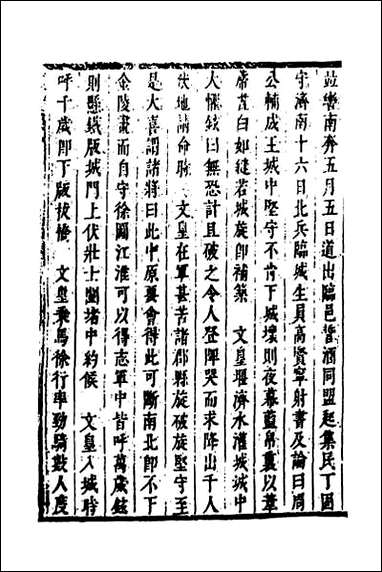 鉉與南奔五月五日道出臨邑誓酒同盟起集民丁固
守濟南十六日北兵臨城生員高賢寧射書及論曰周
公輔成王城中堅守不肯下城壞則夜幕藍帛裹以葦
席苫白如縫若城旋卽補築　文皇堰濟水灌城城中
大懼鉉曰無恐計且破之令人登陴哭而求降出千人
伏地請命時　文皇在軍甚苦諸郡縣旋破旋堅守至
是大喜謂諸將曰此中原要會得此可斷南北卽不下
金陵畫而自守徐圖江淮可以得志軍中皆呼萬歲鉉
則懸鐵版城門上伏壯士闉堵中約候　文皇入城時
呼千歲卽下版拔橋　文皇乘馬徐行率勁騎數人度